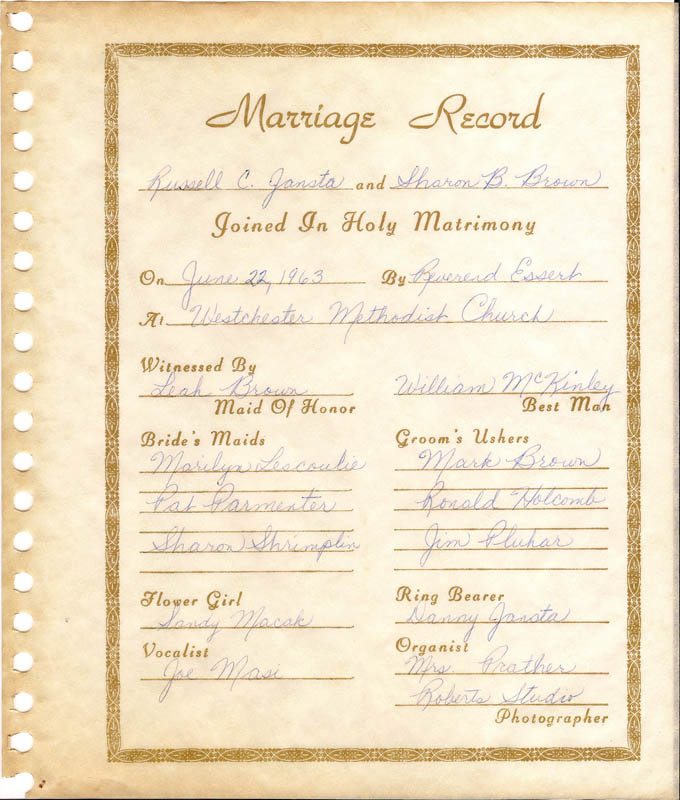 Marriage Record
Russell C. Jansta and Sharon B. Brown
Joined In Holy Matrimony
On June 22, 1963 By Reverend Essert
At Westchester Methodist Church
Witnessed By
Leah Brown William McKinley
Maid Of Honor Best Man
Bride's Maids Groom's Ushers
Marilyn Lescoulie Mark Brown
Pat Parmenter Ronald Holcomb
Sharon Shrimplin Jim Pluhar
Flower Girl Ring Bearer
Sandy Macak Danny Jansta
Vocalist Organist
Joe Masi Mrs Prather
Roberts Studio
Photographer